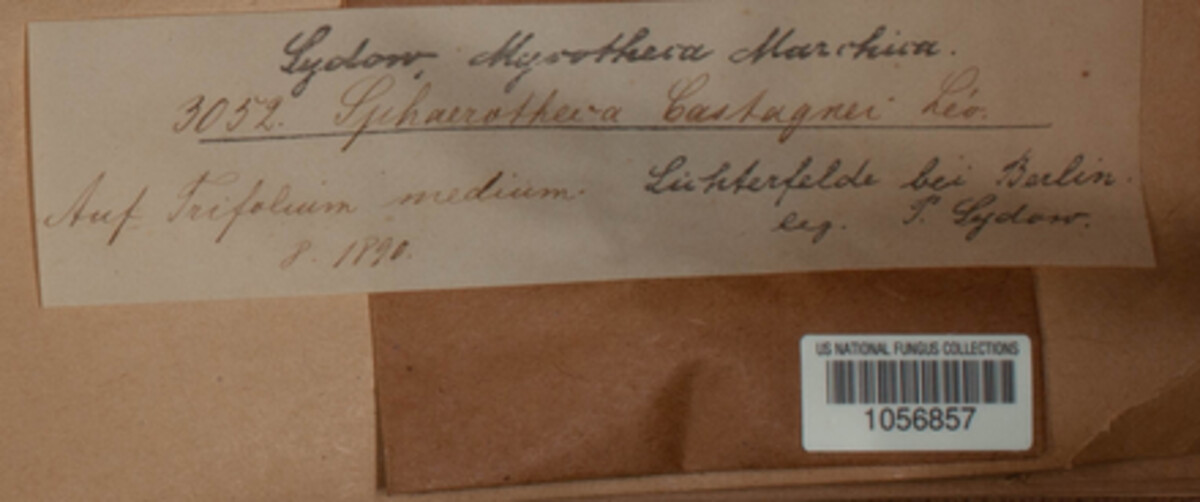 Sydow, Mycotheca Marchica.
3052. Sphaerotheca Castagnei Lév.
Auf Trifolium medium.
8. 1890.
Lichterfelde bei Berlin.
leg. P. Sydow.
US NATIONAL FUNGUS COLLECTIONS
1056857